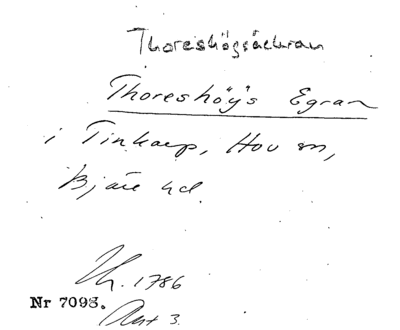 Thoreshögsåekran
Thoreshöy's Egran
i Tinkarp, Hov sn,
Bjäre hd.
Lh. 1786
Akt 3.
Nr 7098.